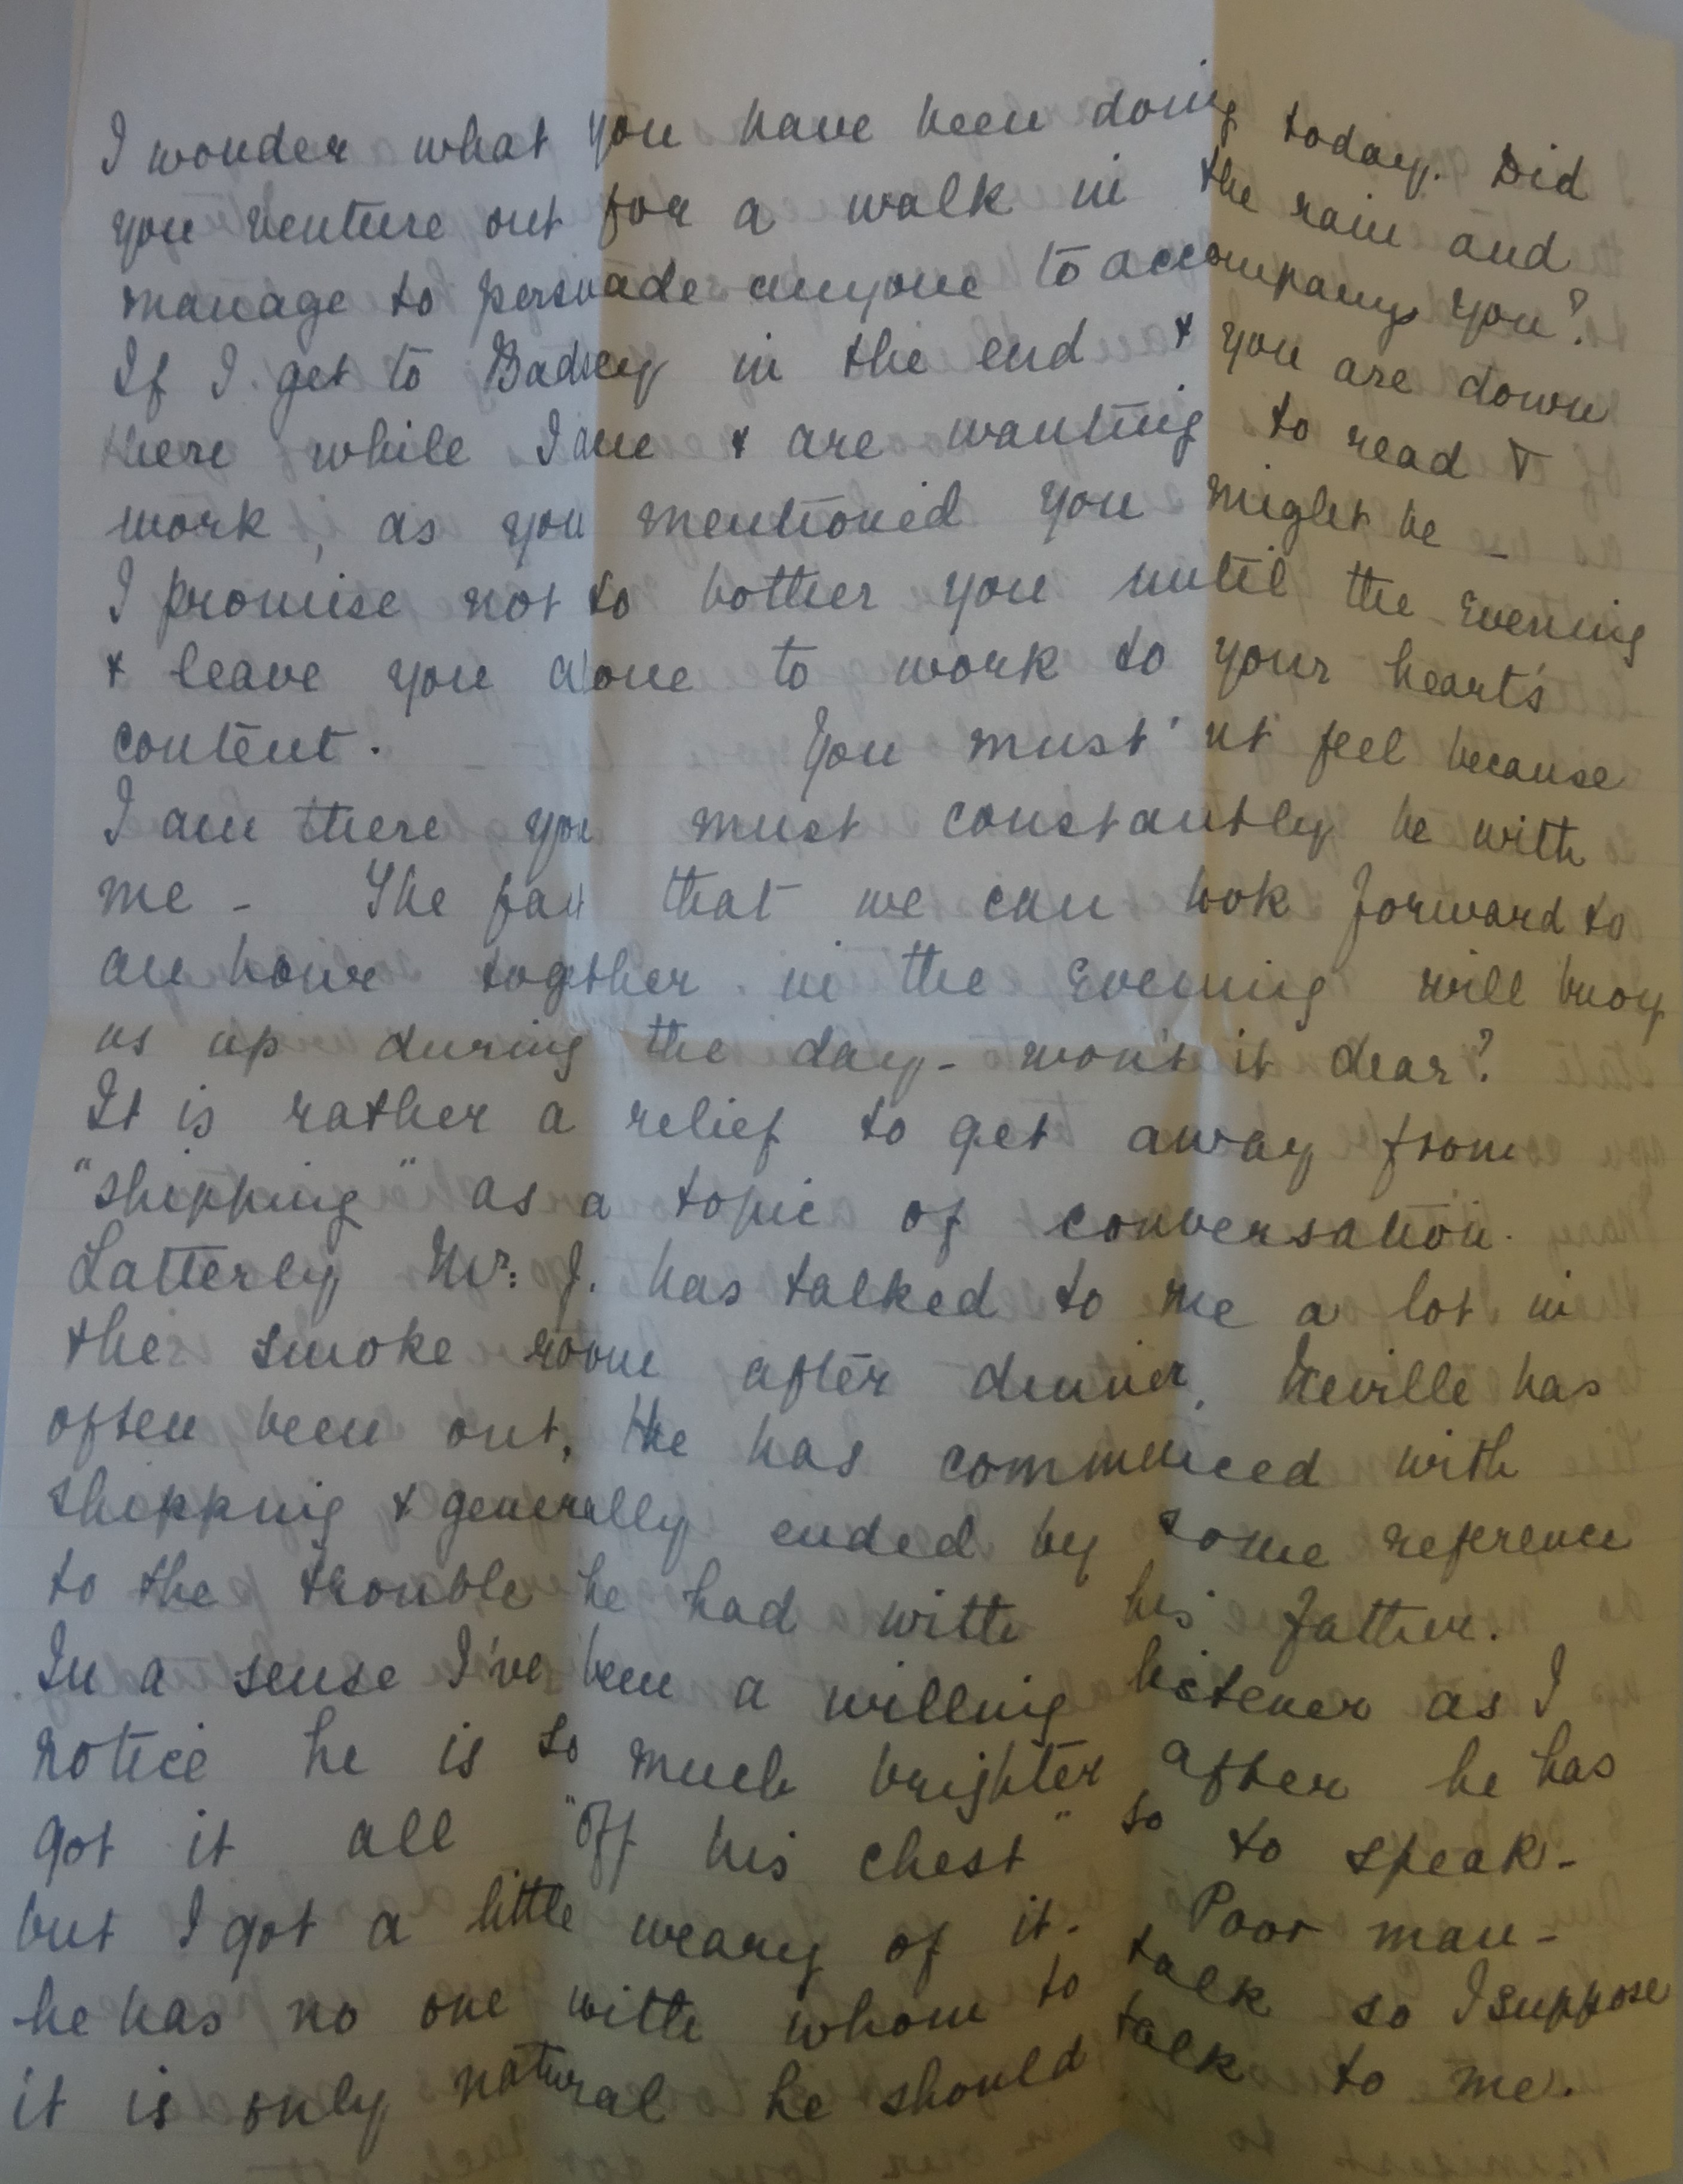 I wonder what you have been doing today. Did
you venture out for a walk in the rain and
manage to persuade anyone to accompany you?
If I get to Badsey in the end & you are down
there while I am & are wanting to read &
work, as you mentioned you might be -
I promise not to bother you until the evening
& leave you alone to work to your heart's
content. You must'nt feel because
I am there you must constantly be with
me - The fact that we can look forward to
an hour together in the evening will buoy
us up during the day - won't it dear?
It is rather a relief to get away from
"shipping" as a topic of conversation.
Latterly Mr: J. has talked to me a lot in
the smoke room after dinner, Neville has
often been out, He has commenced with
shipping & generally ended by some reference
to the trouble he had with his father.
In a sense I've been a willing listener as I
notice he is so much brighter after he has
got it all "off his chest" so to speak -
but I got a little weary of it. Poor man -
he has no one with whom to talk so I suppose
it is only natural he should talk to me.